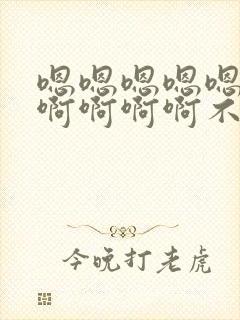 嗯嗯嗯嗯嗯
啊啊啊啊不
今晚打老虎